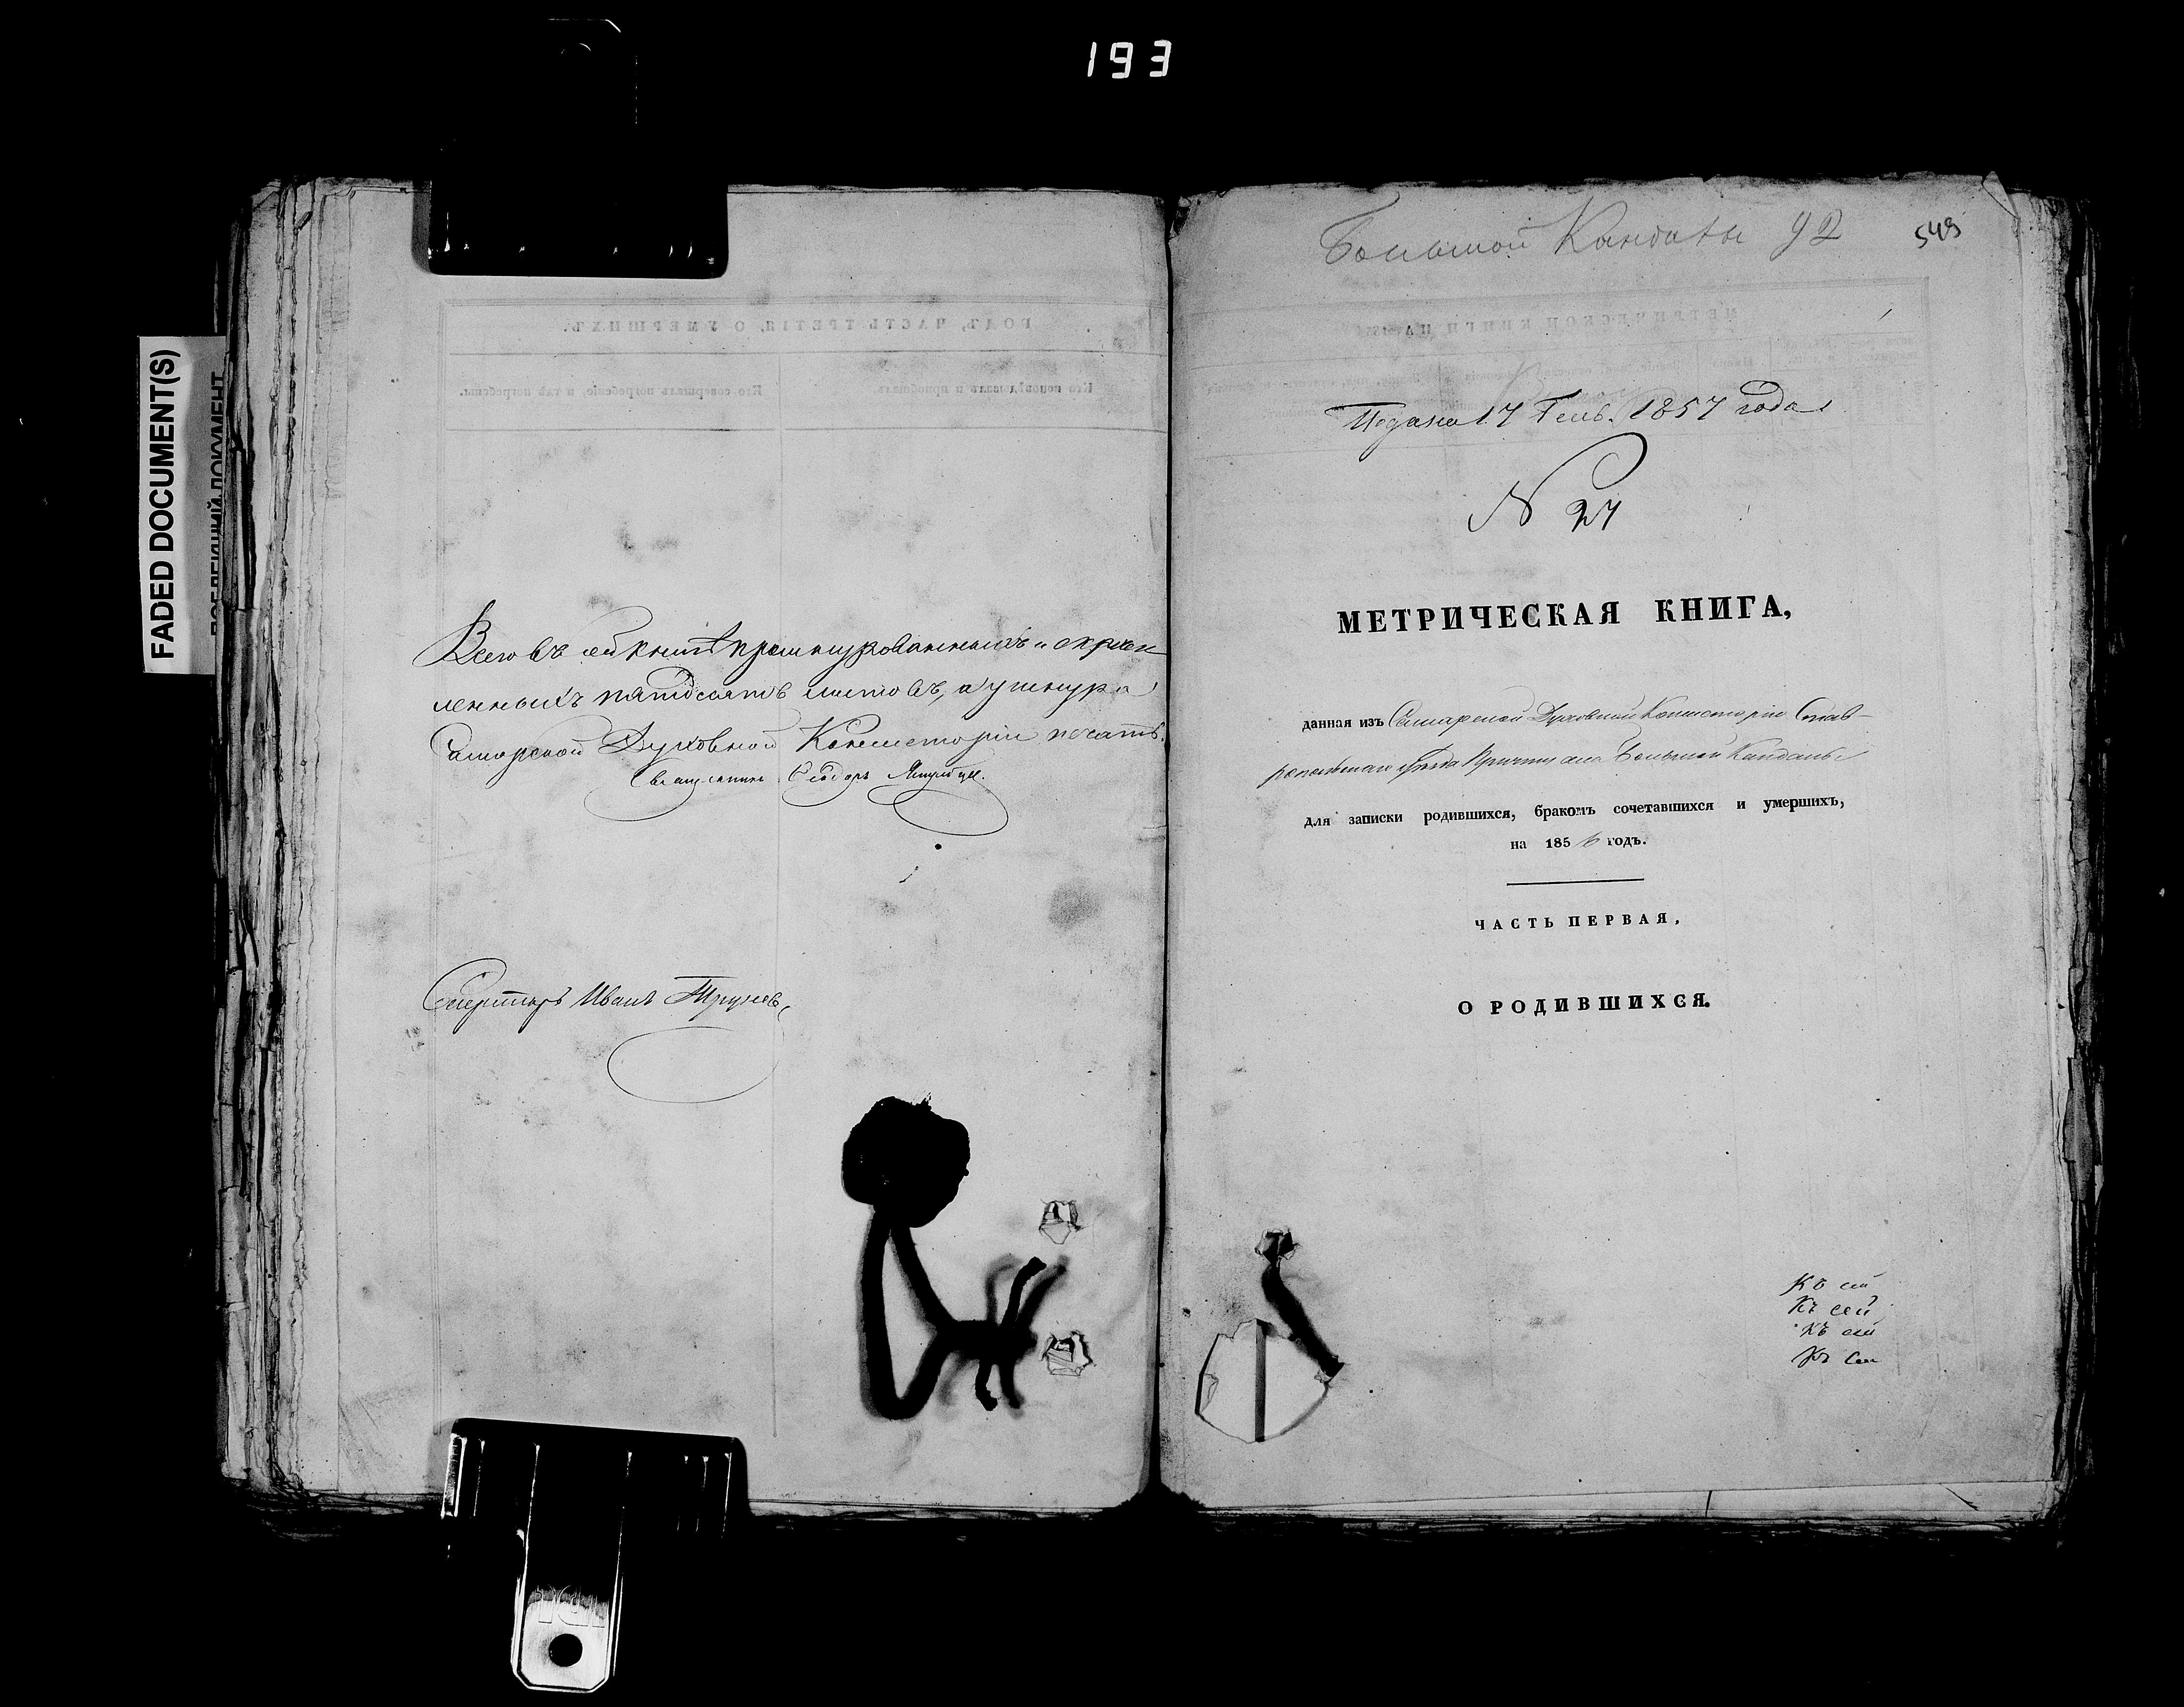 193
FADED DOCUMENT(S)
Всего въ сей книгѣ прошнурованныхъ и скрѣп
ленныхъ пятдесятъ листовъ, а у шнура
Самарской Духовной Консисторіи печать.
Священникъ Ѳеодоръ
Секретарь Иванъ
Большой Кандалы 92
543
Подана 17 Генв. 1857 года
N 27
МЕТРИЧЕСКАЯ КНИГА,
данная изъ Самарской Духовной Консисторіи Став-
ропольскаго уѣзда Причту села Большой Кандалы
для записки родившихся, бракомъ сочетавшихся и умершихъ,
на 1856 годъ.
ЧАСТЬ ПЕРВАЯ,
О РОДИВШИХСЯ.
Къ сей
Къ сей
Къ сей
Къ сей